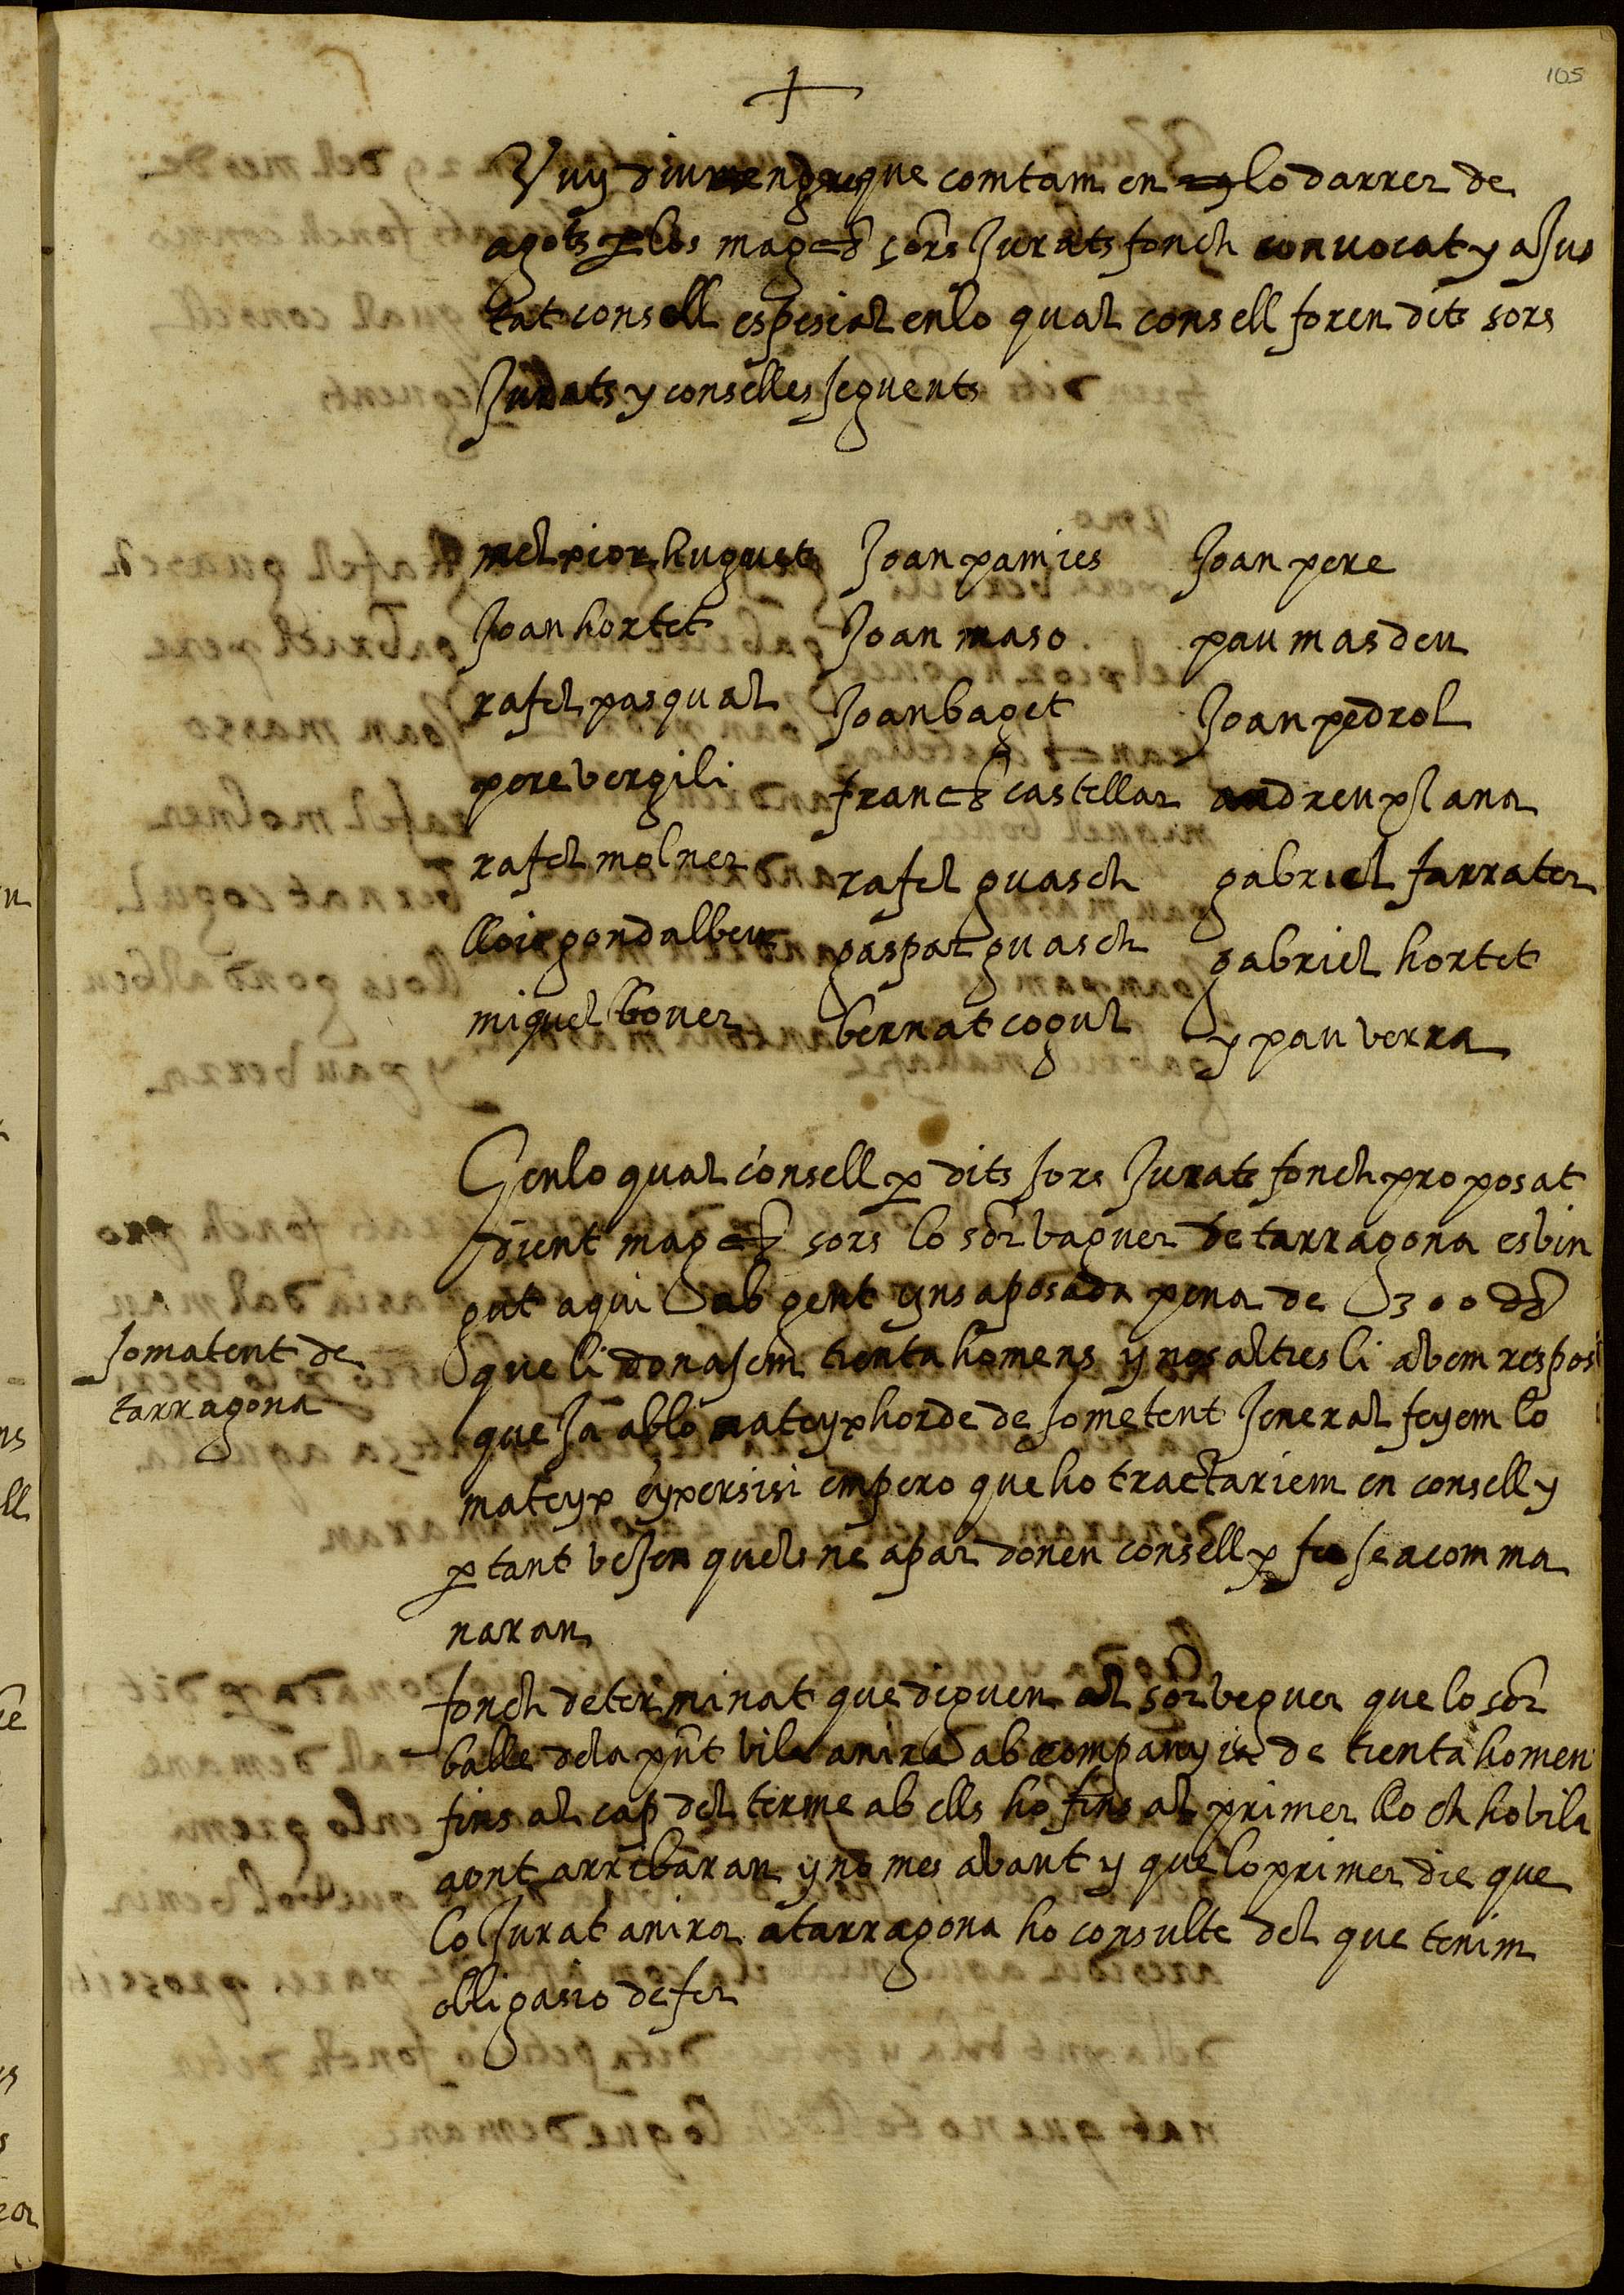 105
+
Vuy diumenge que comtam en lo darrer de
agots p los mag.chs sors Jurats fonch convocat y aJus
tat consell espesial en lo qual consell foren dits sors
Jurats y conselles seguents
melpior huguet Joan pamies Joan pere
Joan hortet Joan maso pau masdeu
rafel pasqual Joan baget Joan pedrol
pere vergili franch castellar andreu plana
rafel molner rafel guasch gabriel farrater
llois gondalbeu gaspar guasch gabriel hortet
miquel bover bernat cogul y pau verra
E en lo qual consell p dits sors Jurats fonch proposat
dient mag.chs sors lo sor vaguer de tarragona es vin
gut aqui ab gent y nsa posada pena de 300 ds
que li donasem trenta homens y nosaltres li abem respost
que Ja ab lo mateyx horde de sometent Jeneral feyem lo
mateyx eyxersisi empero que ho tractariem en consell y
p tant vesen quels ne apar donen consell p se acomma
naran
somatent de
tarragona
fonch determinat que diguen al sor veguer que lo sor
balle de la pnt vila anira ab companyia de trenta homen
fins al cap del terme ab ells ho fins al primer lloch ho vila
aont arribaran y no mes avant y que lo primer die que
lo Jurat anira a tarragona ho consulte del que tenim
obligasio de fer